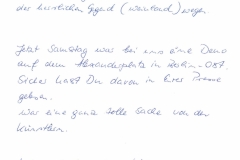 der herrlichen Gegend (weinend) wegen.
Jetzt Samstag war bei uns eine Demo
auf dem Alexanderplatz in Berlin - Ost.
Sicher hast Du davon in Eurer Presse
gelesen.
War eine ganz tolle Sache von den
Künstlern.